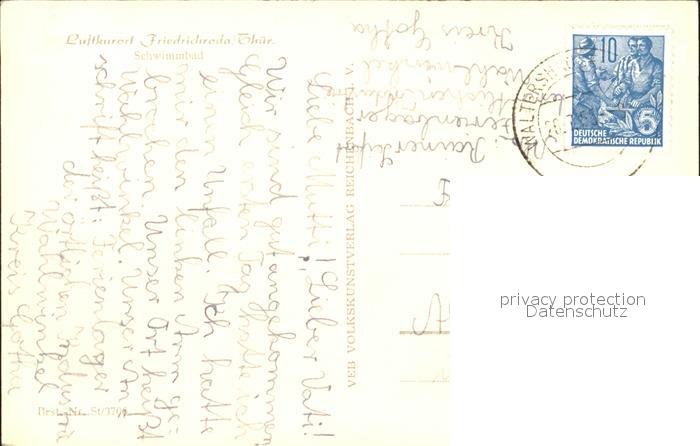 Luftkurort Friedrichroda/Thür.
Schwimmbad
Liebe Mutti! Lieber Vati!
Wir sind gut angekommen.
Gleich ersten Tag hatte ich
einen Unfall. Ich hatte
mir den linken Arm ge-
brochen. Unser Ort heißt
Wahlwinkel. Unser An
schrift heißt: Ferienlager
der örtlichen Industrie
Wahlwinkel
Kreis Gotha
Rainer
Ferienlager
Wahlwinkel
Kreis Gotha
VEB VOLKSKUNSTVERLAG REICHENBACH i. V.
Best.-Nr. St/3706
WALTERSH
10
5
DEUTSCHE
DEMOKRATISCHE REPUBLIK
privacy protection
Datenschutz